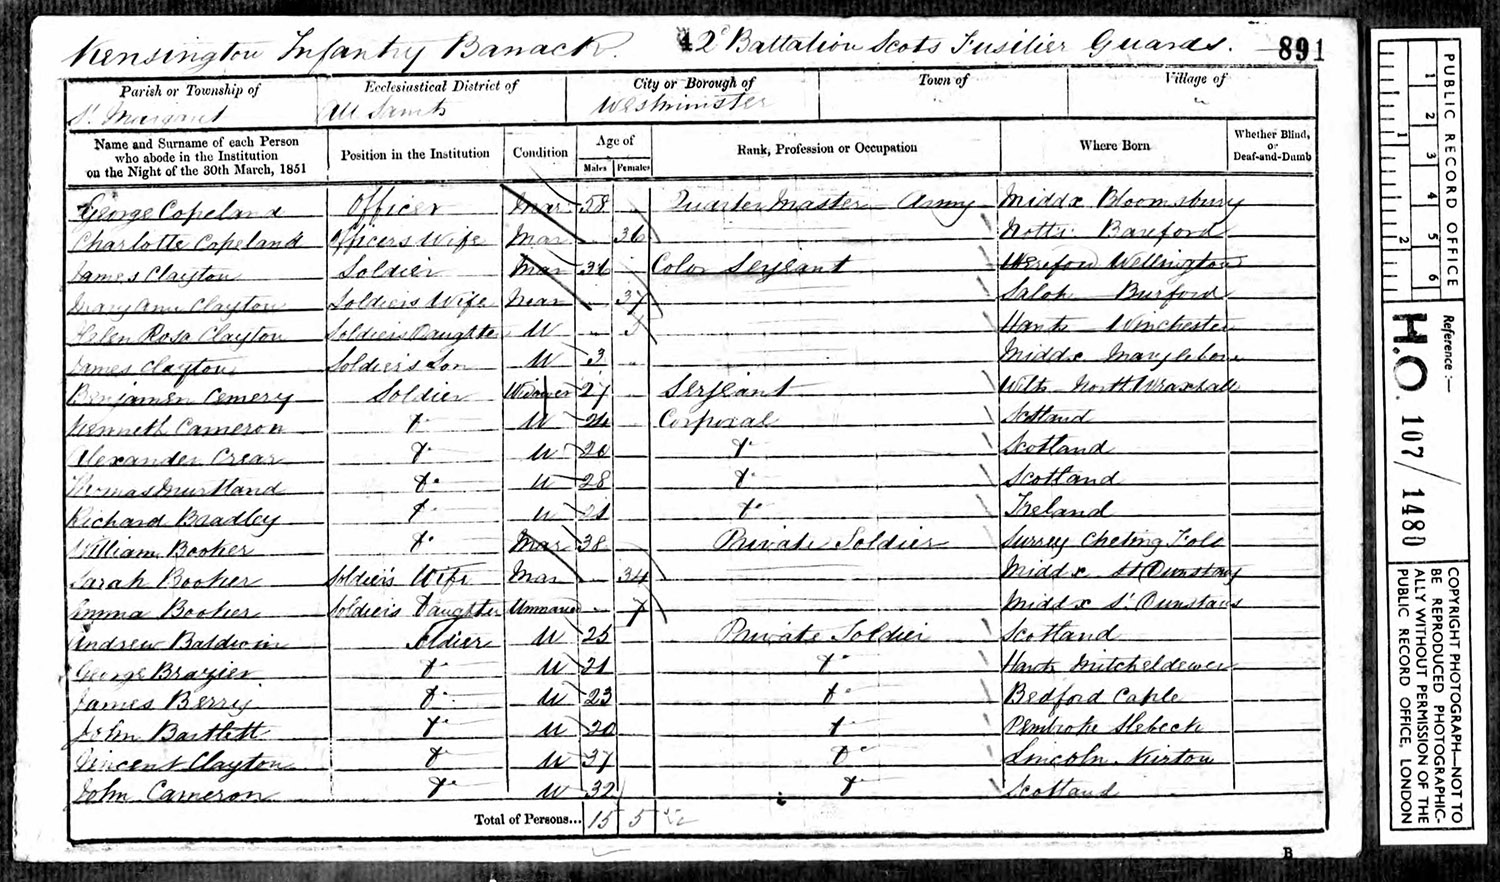 Kensington Infantry Barrack. 2d Battalion Scots Fusilier Guards. 891
Parish or Township of Ecclesiastical District of City or Borough of Town of Village of
St Margaret All Saints Westminster
Name and Surname of each Person who abode in the Institution on the Night of the 30th March, 1851 Position in the Institution Condition Age of Males Females Rank, Profession or Occupation Where Born Whether Blind, or Deaf-and-Dumb
George Copeland Officer Mar 58 Quarter Master Army Middx Bloomsbury
Charlotte Copeland Officers Wife Mar 36 Notts Barford
James Clayton Soldier Mar Color Serjeant Hereford Wellington
Mary Ann Clayton Soldiers Wife Mar 37 Salop Burford
Helen Rosa Clayton Soldiers Daughter U Hants Winchester
James Clayton Soldier's Son U 3 Middx Marylebone
Benjamin Emery Soldier Widower 27 Serjeant Wilts North Wraxall
Kenneth Cameron Do U 24 Corporal Scotland
Alexander Crear Do U 26 Do Scotland
Thomas Murtland Do U 28 Do Scotland
Richard Bradley Do U 21 Do Ireland
William Booker Do Mar 38 Private Soldier Surrey
Sarah Booker Soldier's Wife Mar 34 Middx St Dunstans
Emma Booker Soldiers Daughter Unmarried 7 Middx St Dunstans
Andrew Baldwin Soldier U 25 Private Soldier Scotland
George Brazier Do U 21 Do Hants Mitcheldever
James Berry Do U 23 Do Bedford Caple
John Bartlett Do U 20 Do Pembroke Slebeck
Vincent Clayton Do U 37 Do Lincoln Kirton
John Cameron Do U 32 Do Scotland
Total of Persons... 15 5
B
PUBLIC RECORD OFFICE
1 2 3 4 5 6
1 2
Reference:—
H.O. 107/1480
COPYRIGHT PHOTOGRAPH—NOT TO
BE REPRODUCED PHOTOGRAPHIC-
ALLY WITHOUT PERMISSION OF THE
PUBLIC RECORD OFFICE, LONDON